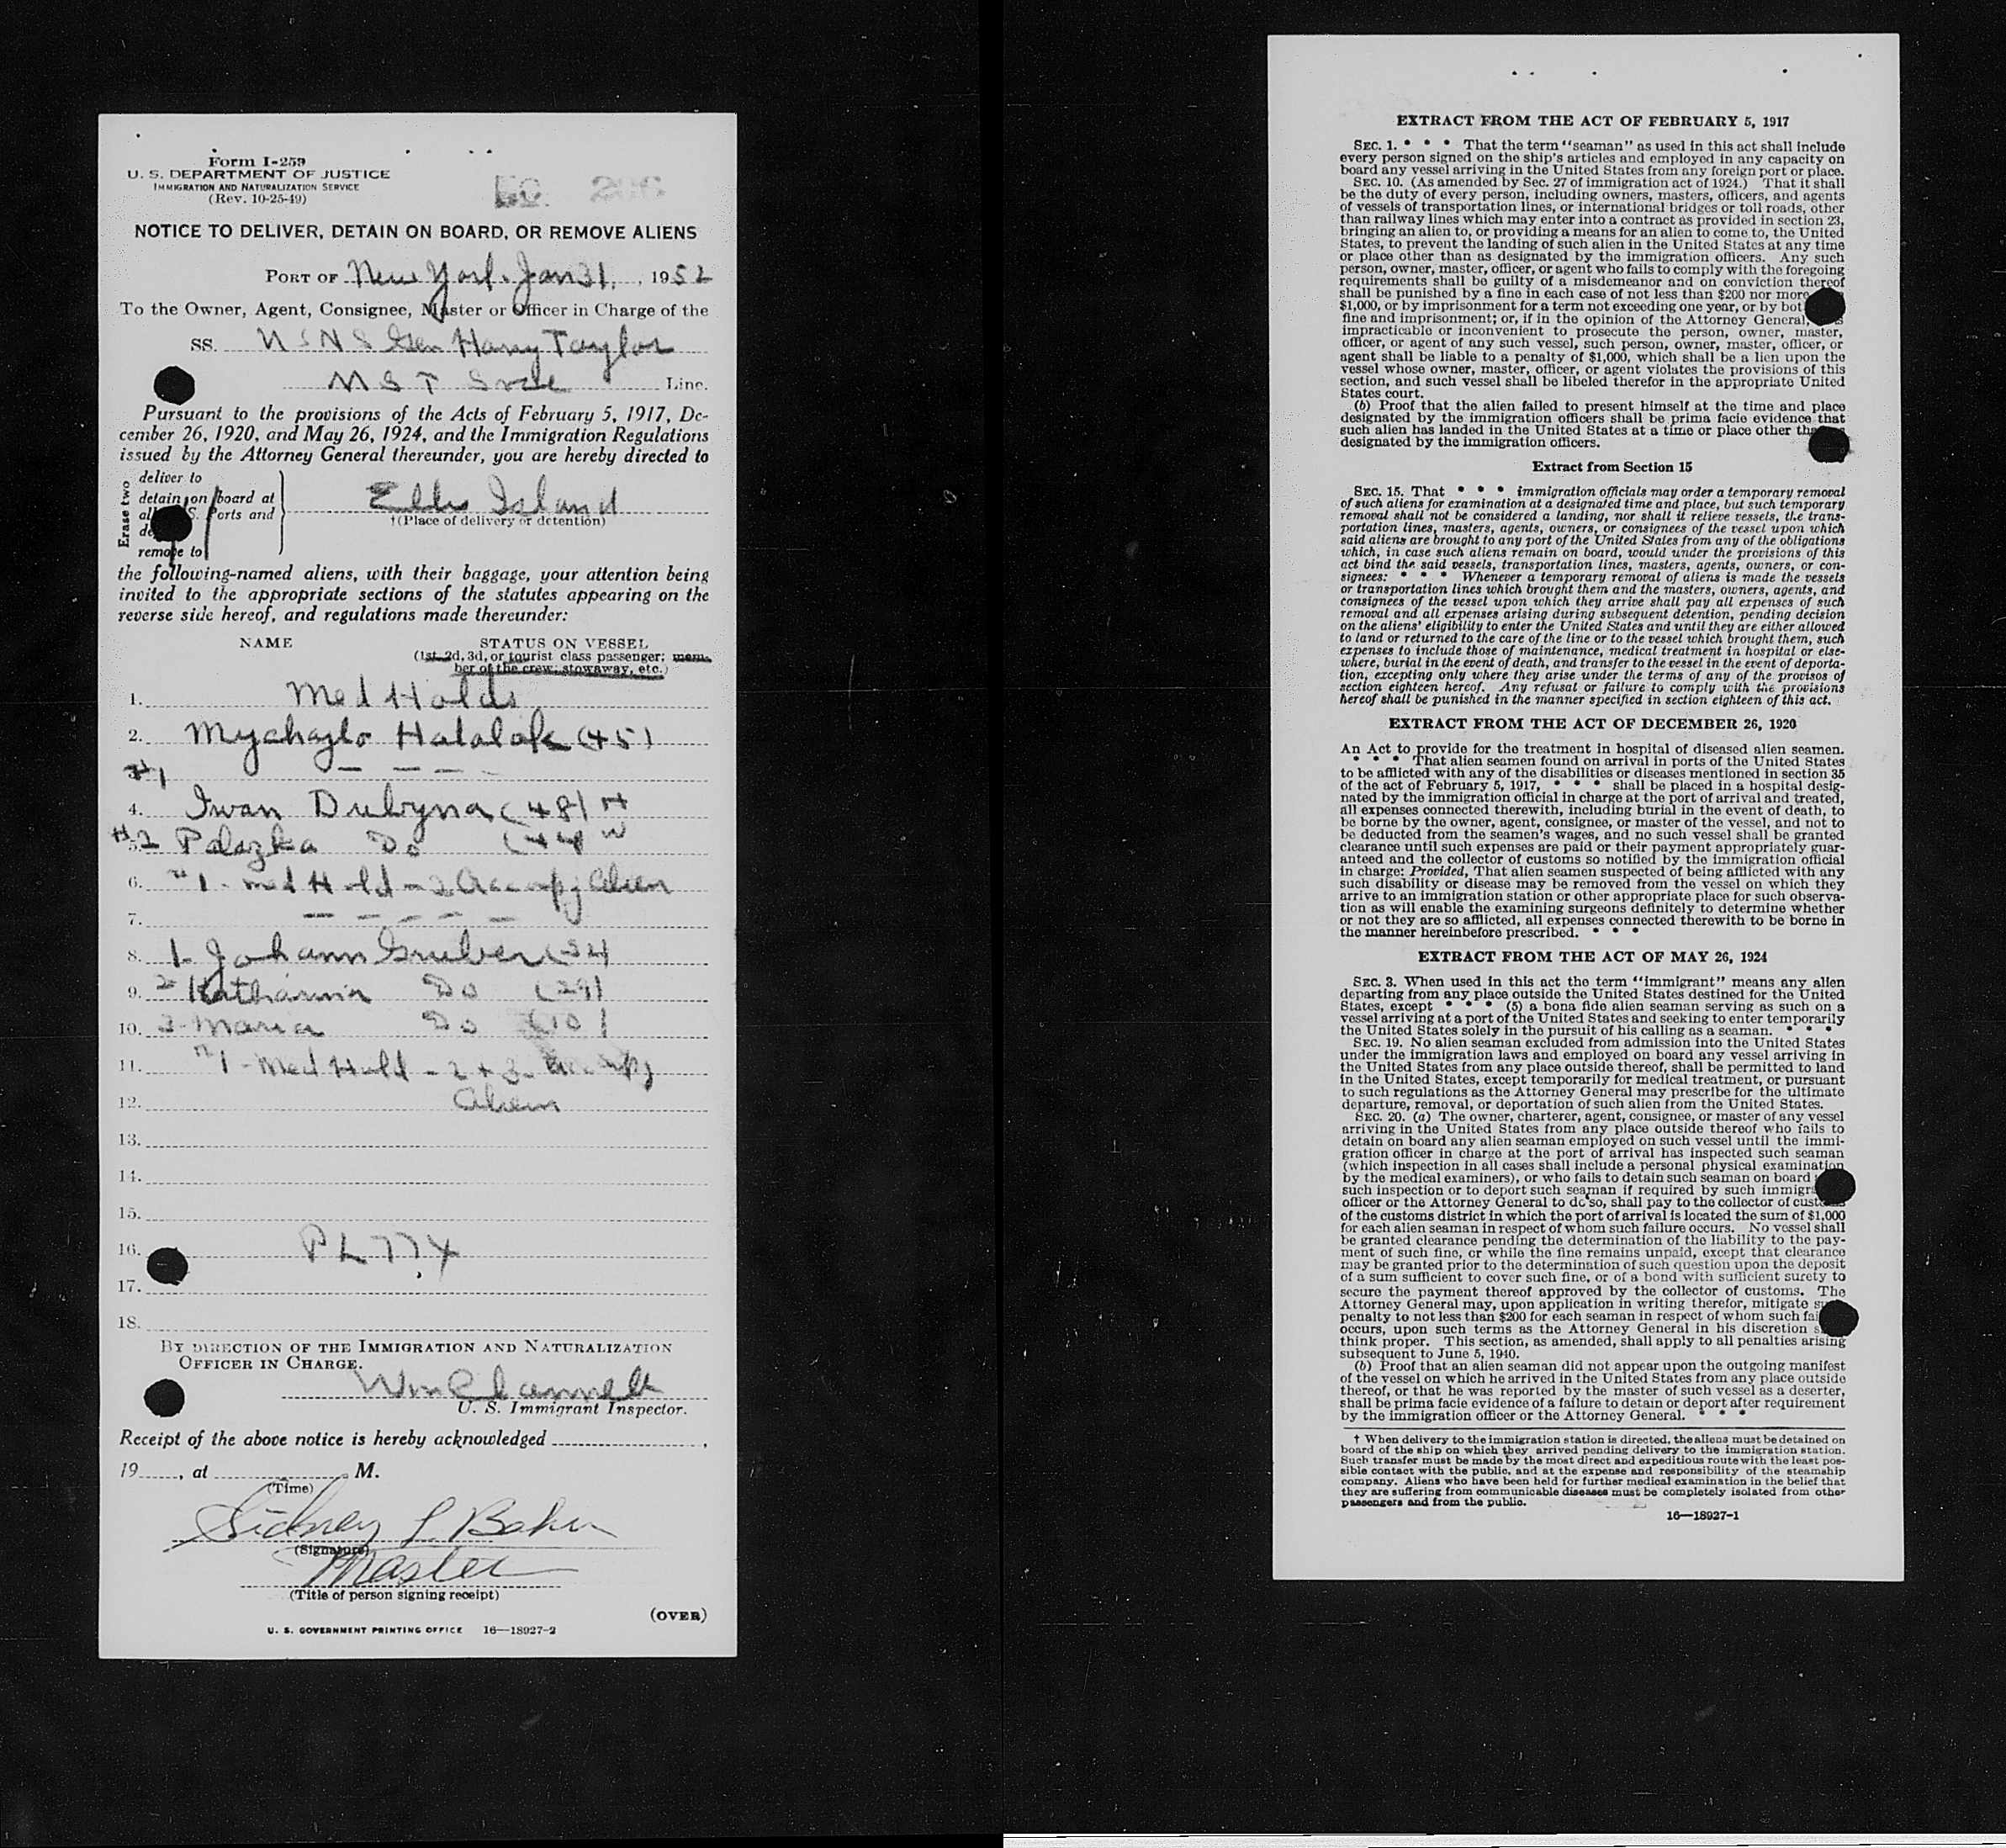 Form I-259
U. S. DEPARTMENT OF JUSTICE
IMMIGRATION AND NATURALIZATION SERVICE
(Rev. 10-25-49)
NOTICE TO DELIVER, DETAIN ON BOARD, OR REMOVE ALIENS
PORT OF New York. Jan 31, 1952
To the Owner, Agent, Consignee, Master or Officer in Charge of the
SS. USNS Gen Harry Taylor
M S T Line.
Pursuant to the provisions of the Acts of February 5, 1917, De-
cember 26, 1920, and May 26, 1924, and the Immigration Regulations
issued by the Attorney General thereunder, you are hereby directed to
Erase two
deliver to
detain on board at
all S. Ports and
remove to
Ellis Island
†(Place of delivery or detention)
the following-named aliens, with their baggage, your attention being
invited to the appropriate sections of the statutes appearing on the
reverse side hereof, and regulations made thereunder:
NAME STATUS ON VESSEL
(1st, 2d, 3d, or tourist class passenger; mem-
ber of the crew; stowaway, etc.)
1. Med Holds
2. Mychajlo Halalak (45)
#1
4. Iwan Dubyna (48) H
#2 Palazka Do (44 W
6. #1 - Med Hold - 2 Accompj Alien
7.
8. 1- Johann Gruber (34
9. 2 Katharina Do (29)
10. 3- Maria Do (10)
11. #1 - Med Hold - 2 + 3-
12. Alien
13.
14.
15.
16. PL 774
17.
18.
BY DIRECTION OF THE IMMIGRATION AND NATURALIZATION
OFFICER IN CHARGE.
U. S. Immigrant Inspector.
Receipt of the above notice is hereby acknowledged ,
19 , at M.
(Time)
Sidney L. Baker
(Signature)
Master
(Title of person signing receipt)
(OVER)
U. S. GOVERNMENT PRINTING OFFICE 16—18927-2
EXTRACT FROM THE ACT OF FEBRUARY 5, 1917
SEC. 1. * * * That the term "seaman" as used in this act shall include
every person signed on the ship's articles and employed in any capacity on
board any vessel arriving in the United States from any foreign port or place.
SEC. 10. (As amended by Sec. 27 of immigration act of 1924.) That it shall
be the duty of every person, including owners, masters, officers, and agents
of vessels of transportation lines, or international bridges or toll roads, other
than railway lines which may enter into a contract as provided in section 23,
bringing an alien to, or providing a means for an alien to come to, the United
States, to prevent the landing of such alien in the United States at any time
or place other than as designated by the immigration officers. Any such
person, owner, master, officer, or agent who fails to comply with the foregoing
requirements shall be guilty of a misdemeanor and on conviction thereof
shall be punished by a fine in each case of not less than $200 nor more
$1,000, or by imprisonment for a term not exceeding one year, or by bot
fine and imprisonment; or, if in the opinion of the Attorney General,
impracticable or inconvenient to prosecute the person, owner, master,
officer, or agent of any such vessel, such person, owner, master, officer, or
agent shall be liable to a penalty of $1,000, which shall be a lien upon the
vessel whose owner, master, officer, or agent violates the provisions of this
section, and such vessel shall be libeled therefor in the appropriate United
States court.
(b) Proof that the alien failed to present himself at the time and place
designated by the immigration officers shall be prima facie evidence that
such alien has landed in the United States at a time or place other
designated by the immigration officers.
Extract from Section 15
SEC. 15. That * * * immigration officials may order a temporary removal
of such aliens for examination at a designated time and place, but such temporary
removal shall not be considered a landing, nor shall it relieve vessels, the trans-
portation lines, masters, agents, owners, or consignees of the vessel upon which
said aliens are brought to any port of the United States from any of the obligations
which, in case such aliens remain on board, would under the provisions of this
act bind the said vessels, transportation lines, masters, agents, owners, or con-
signees: * * * Whenever a temporary removal of aliens is made the vessels
or transportation lines which brought them and the masters, owners, agents, and
consignees of the vessel upon which they arrive shall pay all expenses of such
removal and all expenses arising during subsequent detention, pending decision
on the aliens' eligibility to enter the United States and until they are either allowed
to land or returned to the care of the line or to the vessel which brought them, such
expenses to include those of maintenance, medical treatment in hospital or else-
where, burial in the event of death, and transfer to the vessel in the event of deporta-
tion, excepting only where they arise under the terms of any of the provisos of
section eighteen hereof. Any refusal or failure to comply with the provisions
hereof shall be punished in the manner specified in section eighteen of this act.
EXTRACT FROM THE ACT OF DECEMBER 26, 1920
An Act to provide for the treatment in hospital of diseased alien seamen.
* * * That alien seamen found on arrival in ports of the United States
to be afflicted with any of the disabilities or diseases mentioned in section 35
of the act of February 5, 1917, * * * shall be placed in a hospital desig-
nated by the immigration official in charge at the port of arrival and treated,
all expenses connected therewith, including burial in the event of death, to
be borne by the owner, agent, consignee, or master of the vessel, and not to
be deducted from the seamen's wages, and no such vessel shall be granted
clearance until such expenses are paid or their payment appropriately guar-
anteed and the collector of customs so notified by the immigration official
in charge: Provided, That alien seamen suspected of being afflicted with any
such disability or disease may be removed from the vessel on which they
arrive to an immigration station or other appropriate place for such observa-
tion as will enable the examining surgeons definitely to determine whether
or not they are so afflicted, all expenses connected therewith to be borne in
the manner hereinbefore prescribed. * * *
EXTRACT FROM THE ACT OF MAY 26, 1924
SEC. 3. When used in this act the term "immigrant" means any alien
departing from any place outside the United States destined for the United
States, except * * * (5) a bona fide alien seaman serving as such on a
vessel arriving at a port of the United States and seeking to enter temporarily
the United States solely in the pursuit of his calling as a seaman. * * *
SEC. 19. No alien seaman excluded from admission into the United States
under the immigration laws and employed on board any vessel arriving in
the United States from any place outside thereof, shall be permitted to land
in the United States, except temporarily for medical treatment, or pursuant
to such regulations as the Attorney General may prescribe for the ultimate
departure, removal, or deportation of such alien from the United States.
SEC. 20. (a) The owner, charterer, agent, consignee, or master of any vessel
arriving in the United States from any place outside thereof who fails to
detain on board any alien seaman employed on such vessel until the immi-
gration officer in charge at the port of arrival has inspected such seaman
(which inspection in all cases shall include a personal physical examination
by the medical examiners), or who fails to detain such seaman on board
such inspection or to deport such seaman if required by such immigr
officer or the Attorney General to do so, shall pay to the collector of
of the customs district in which the port of arrival is located the sum of $1,000
for each alien seaman in respect of whom such failure occurs. No vessel shall
be granted clearance pending the determination of the liability to the pay-
ment of such fine, or while the fine remains unpaid, except that clearance
may be granted prior to the determination of such question upon the deposit
of a sum sufficient to cover such fine, or of a bond with sufficient surety to
secure the payment thereof approved by the collector of customs. The
Attorney General may, upon application in writing therefor, mitigate
penalty to not less than $200 for each seaman in respect of whom such fai
occurs, upon such terms as the Attorney General in his discretion
think proper. This section, as amended, shall apply to all penalties arising
subsequent to June 5, 1940.
(b) Proof that an alien seaman did not appear upon the outgoing manifest
of the vessel on which he arrived in the United States from any place outside
thereof, or that he was reported by the master of such vessel as a deserter,
shall be prima facie evidence of a failure to detain or deport after requirement
by the immigration officer or the Attorney General. * * *
† When delivery to the immigration station is directed, the aliens must be detained on
board of the ship on which they arrived pending delivery to the immigration station.
Such transfer must be made by the most direct and expeditious route with the least pos-
sible contact with the public, and at the expense and responsibility of the steamship
company. Aliens who have been held for further medical examination in the belief that
they are suffering from communicable diseases must be completely isolated from other
passengers and from the public.
16—18927-1